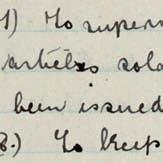 1) To superv
articles sold
been issued
2.) To keep